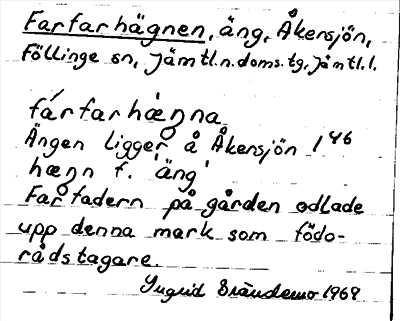 Farfarhägnen, äng, Åkersjön,
Föllinge sn, Jämtl.n.doms.tg, Jämtl.l.
fárfarhæ̀ŋna
Ängen ligger å Åkersjön 1⁴⁶
hæŋn f. 'äng'
Farfadern på gården odlade
upp denna mark som födo-
rådstagare.
Ingrid Brändemo 1969